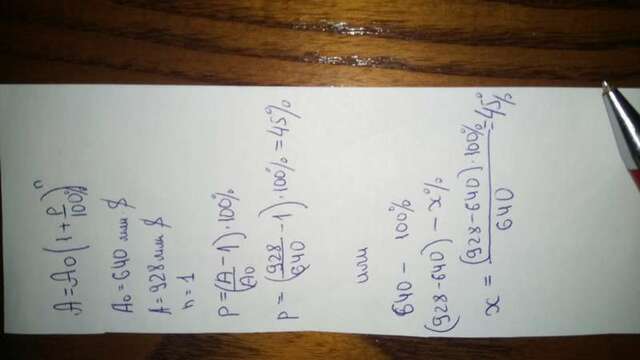 A = A₀ (1 + P/100%)ⁿ
A₀ = 640 млн $
A = 928 млн $
n = 1
P = (A/A₀ - 1) · 100%
P = (928/640 - 1) · 100% = 45%
или
640 - 100%
(928 - 640) - x%
x = (928 - 640) · 100% / 640 = 45%